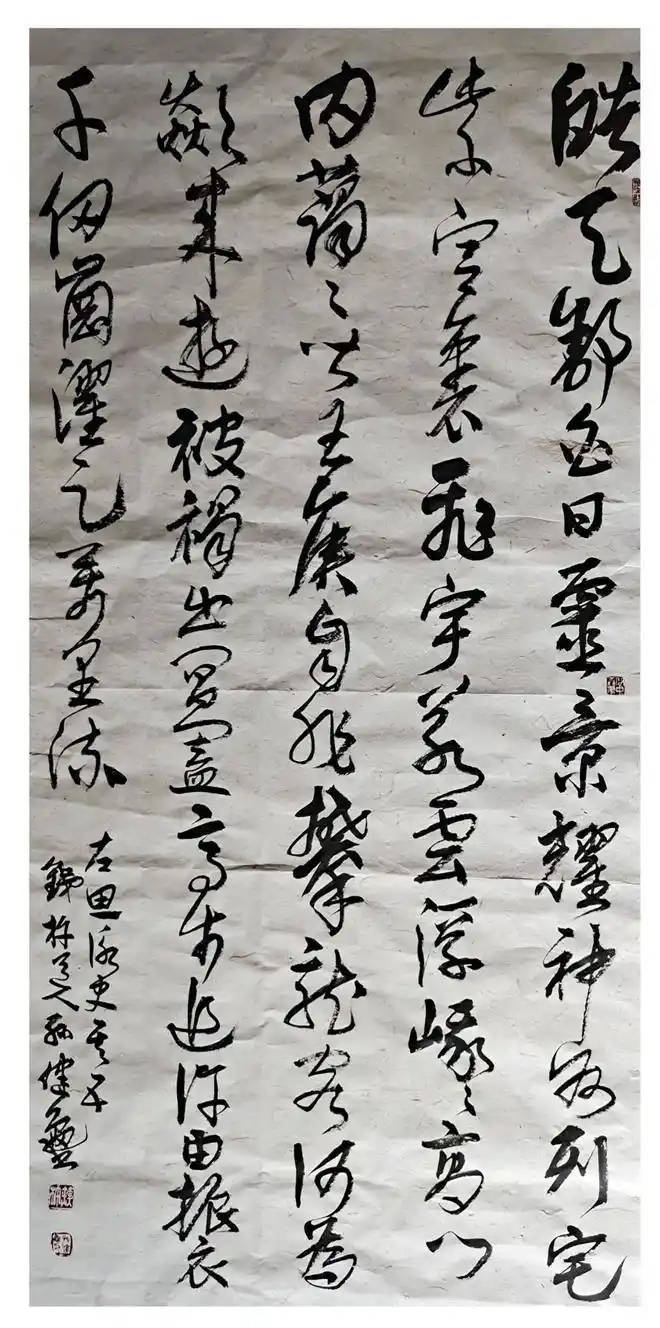 皓天舒白日靈景耀神州列宅
紫宮裏飛宇若雲浮峨々高門
內藹々皆王侯自非攀龍客何為
歘来遊被褐出閶闔高步追許由振衣
千仞崗濯足萬里流
左思詠史其五
道人孫健